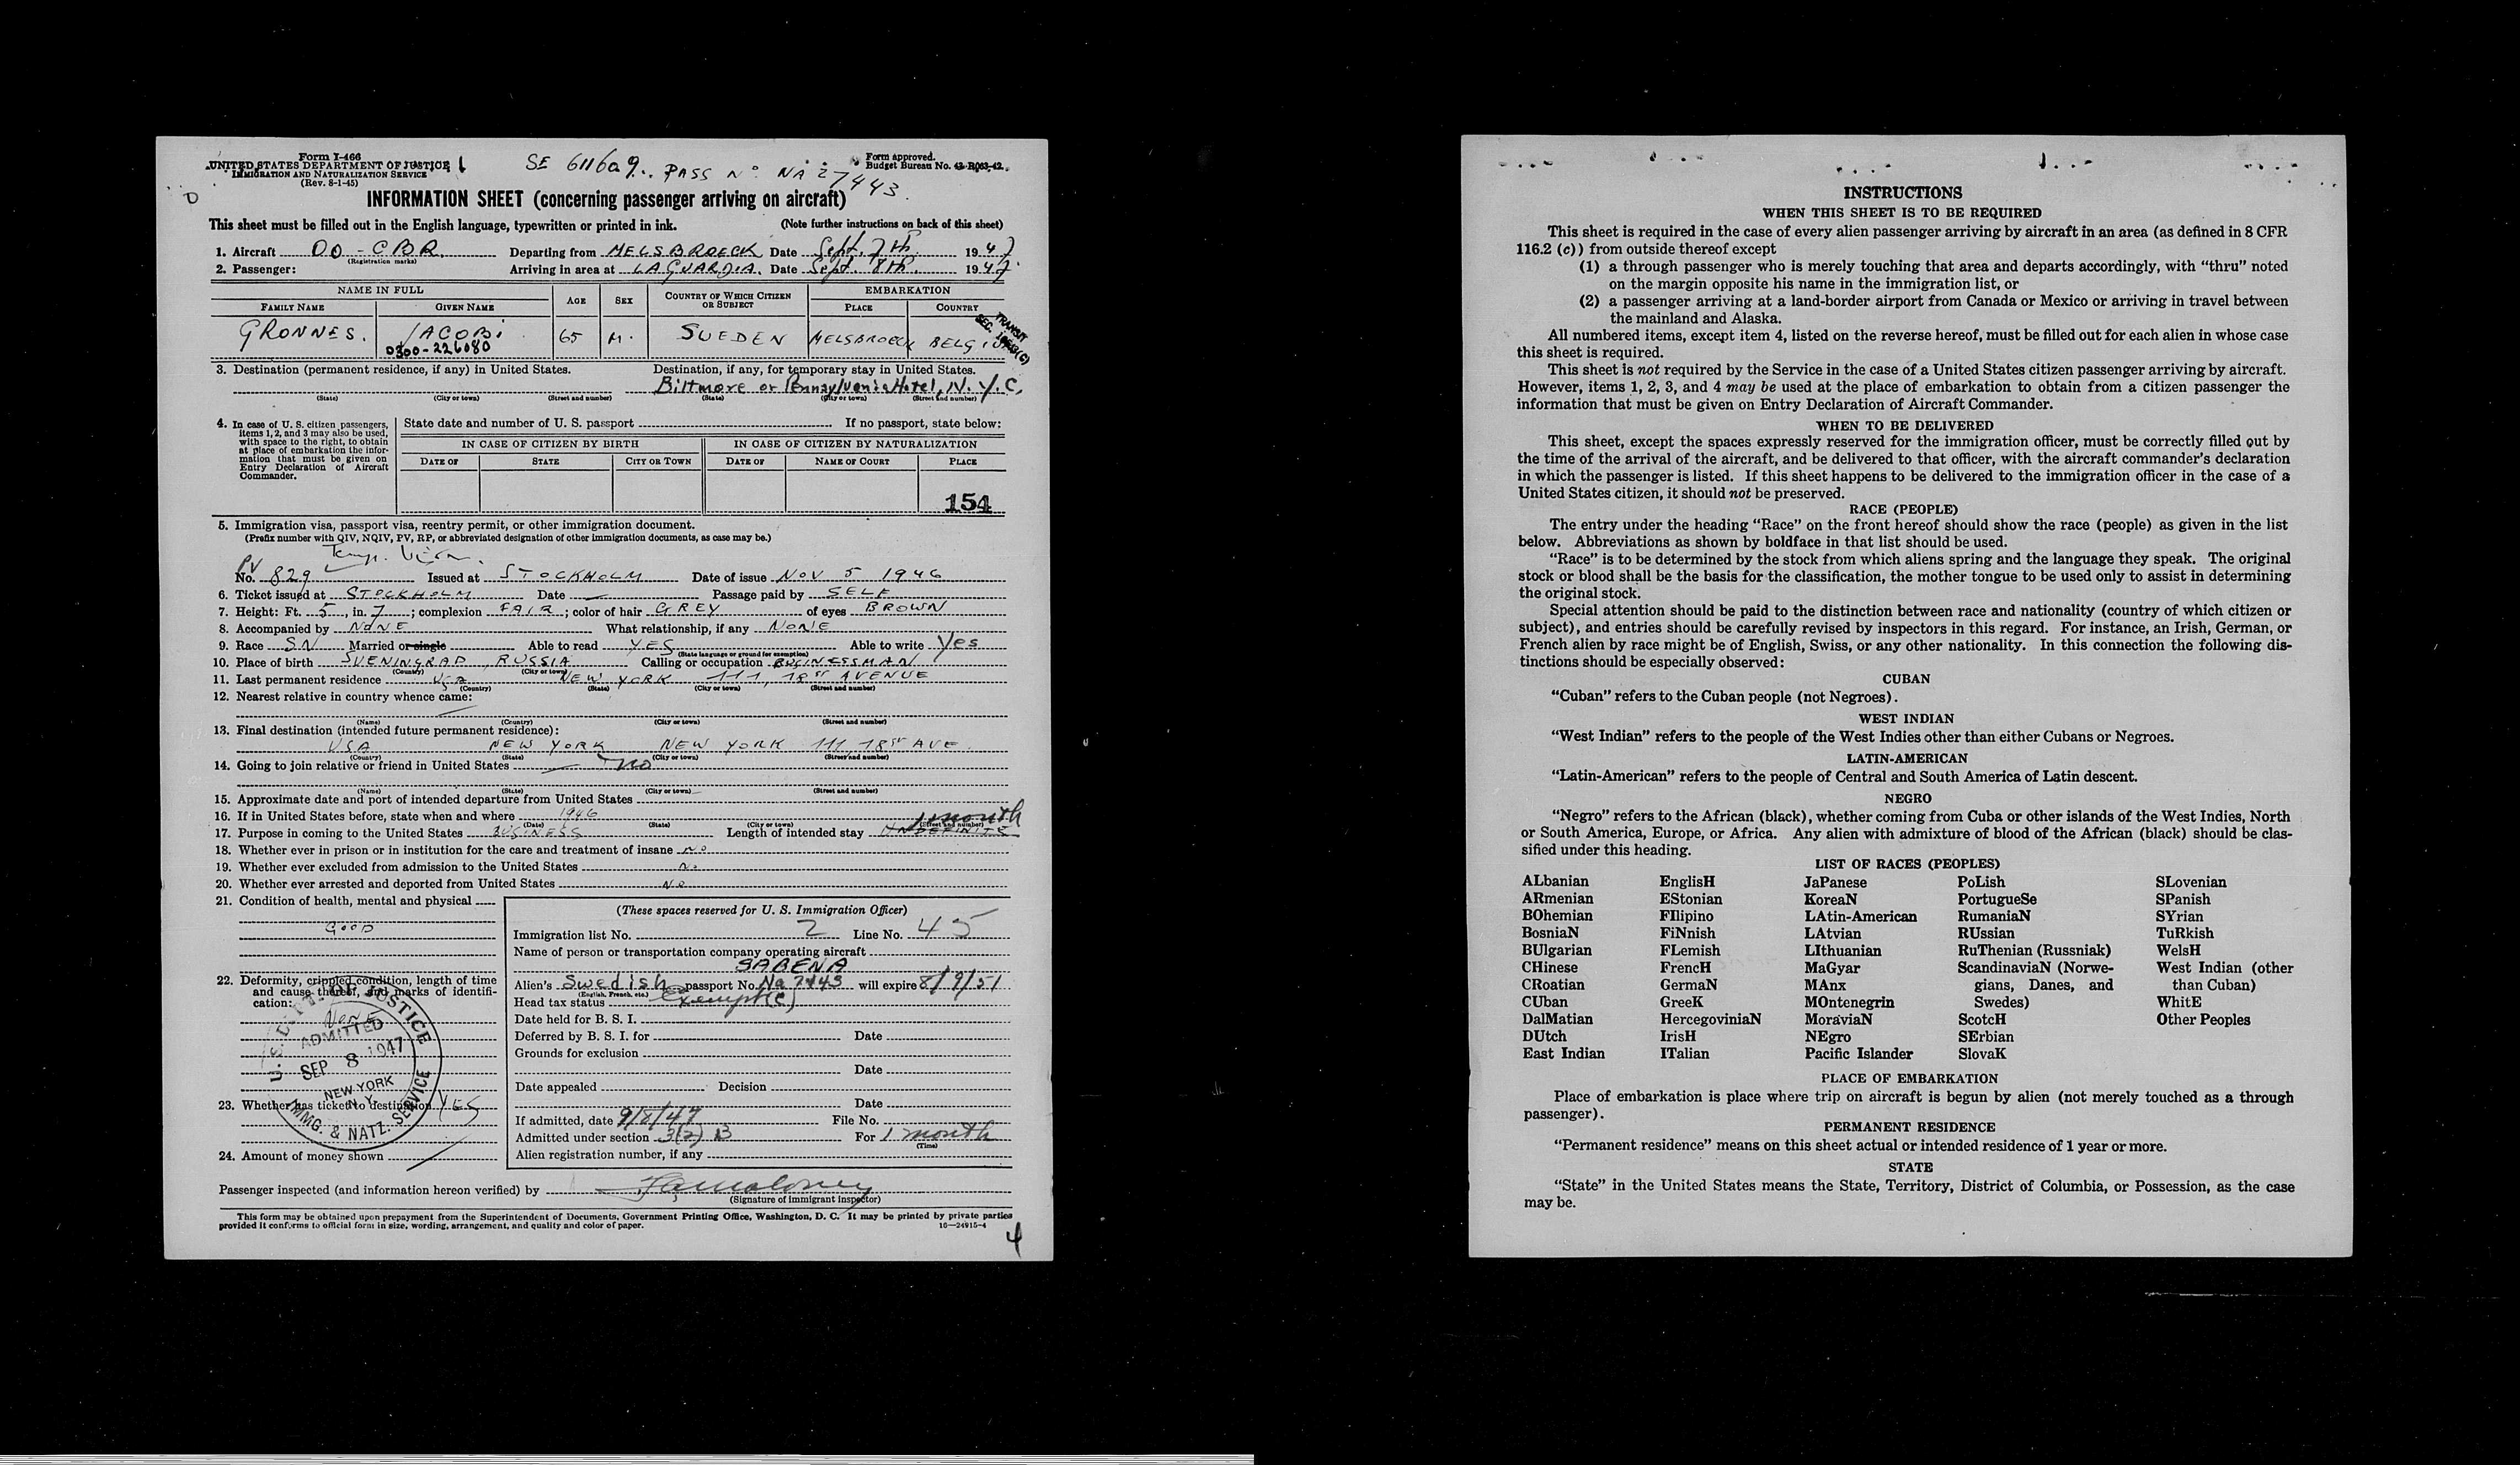 Form I-466
UNITED STATES DEPARTMENT OF JUSTICE
IMMIGRATION AND NATURALIZATION SERVICE
(Rev. 8-1-45)
SE 611609.. PASS No. NA 27443.
Form approved.
Budget Bureau No. 43-R063-42.
INFORMATION SHEET (concerning passenger arriving on aircraft)
This sheet must be filled out in the English language, typewritten or printed in ink. (Note further instructions on back of this sheet)
1. Aircraft OO-CBR. Departing from MELSBROECK Date Sept. 7th. 1947
(Registration marks)
2. Passenger: Arriving in area at LAGUARDIA. Date Sept. 8th. 1947
NAME IN FULL AGE SEX COUNTRY OF WHICH CITIZEN OR SUBJECT EMBARKATION
FAMILY NAME GIVEN NAME PLACE COUNTRY
GRONNES. JACOBI 65 M. SWEDEN MELSBROECK BELGIUM
0300-226080
TRANSIT
3. Destination (permanent residence, if any) in United States. Destination, if any, for temporary stay in United States.
Biltmore or Pennsylvania Hotel, N.Y.C.
(State) (City or town) (Street and number) (State) (City or town) (Street and number)
4. In case of U. S. citizen passengers, items 1, 2, and 3 may also be used, with space to the right, to obtain at place of embarkation the information that must be given on Entry Declaration of Aircraft Commander.
State date and number of U. S. passport If no passport, state below:
IN CASE OF CITIZEN BY BIRTH IN CASE OF CITIZEN BY NATURALIZATION
DATE OF STATE CITY OR TOWN DATE OF NAME OF COURT PLACE
154
5. Immigration visa, passport visa, reentry permit, or other immigration document.
(Prefix number with QIV, NQIV, PV, RP, or abbreviated designation of other immigration documents, as case may be.)
PV
No. 829 Issued at STOCKHOLM Date of issue NOV 5 1946
6. Ticket issued at STOCKHOLM Date — Passage paid by SELF
7. Height: Ft. 5, in. 7; complexion FAIR; color of hair GREY of eyes BROWN
8. Accompanied by NONE What relationship, if any NONE
9. Race SN Married or single Able to read YES Able to write Yes
(State language or ground for exemption)
10. Place of birth SVENINGRAD, RUSSIA Calling or occupation BUSINESSMAN
(Country) (City or town)
11. Last permanent residence USA NEW YORK 111, 18st AVENUE
(Country) (State) (City or town) (Street and number)
12. Nearest relative in country whence came:
(Name) (Country) (City or town) (Street and number)
13. Final destination (intended future permanent residence):
USA NEW YORK NEW YORK 111, 18st AVE.
(Country) (State) (City or town) (Street and number)
14. Going to join relative or friend in United States — no
(Name) (State) (City or town) (Street and number)
15. Approximate date and port of intended departure from United States
16. If in United States before, state when and where 1946
(Date) (State) (City or town) (Street and number)
1 month
17. Purpose in coming to the United States BUSINESS Length of intended stay INDEFINITE
18. Whether ever in prison or in institution for the care and treatment of insane No
19. Whether ever excluded from admission to the United States No
20. Whether ever arrested and deported from United States No
21. Condition of health, mental and physical
GOOD
22. Deformity, crippled condition, length of time and cause thereof, and marks of identification:
None
U. S. DEPT. OF JUSTICE
ADMITTED
SEP 8 1947
NEW YORK
N. Y.
IMMG. & NATZ. SERVICE
23. Whether has ticket to destination YES
24. Amount of money shown
(These spaces reserved for U. S. Immigration Officer)
Immigration list No. 2 Line No. 45
Name of person or transportation company operating aircraft
SABENA
Alien's Swedish passport No. Na 7443 will expire 8/9/51
(English, French, etc.)
Head tax status exempt (C)
Date held for B. S. I.
Deferred by B. S. I. for Date
Grounds for exclusion
Date
Date appealed Decision
Date
If admitted, date 9/8/47 File No.
Admitted under section 3(2) B For 1 month
(Time)
Alien registration number, if any
Passenger inspected (and information hereon verified) by
(Signature of immigrant inspector)
This form may be obtained upon prepayment from the Superintendent of Documents, Government Printing Office, Washington, D. C. It may be printed by private parties
provided it conforms to official form in size, wording, arrangement, and quality and color of paper. 16—24915-4
4
INSTRUCTIONS
WHEN THIS SHEET IS TO BE REQUIRED
This sheet is required in the case of every alien passenger arriving by aircraft in an area (as defined in 8 CFR
116.2 (c)) from outside thereof except
(1) a through passenger who is merely touching that area and departs accordingly, with "thru" noted
on the margin opposite his name in the immigration list, or
(2) a passenger arriving at a land-border airport from Canada or Mexico or arriving in travel between
the mainland and Alaska.
All numbered items, except item 4, listed on the reverse hereof, must be filled out for each alien in whose case
this sheet is required.
This sheet is not required by the Service in the case of a United States citizen passenger arriving by aircraft.
However, items 1, 2, 3, and 4 may be used at the place of embarkation to obtain from a citizen passenger the
information that must be given on Entry Declaration of Aircraft Commander.
WHEN TO BE DELIVERED
This sheet, except the spaces expressly reserved for the immigration officer, must be correctly filled out by
the time of the arrival of the aircraft, and be delivered to that officer, with the aircraft commander's declaration
in which the passenger is listed. If this sheet happens to be delivered to the immigration officer in the case of a
United States citizen, it should not be preserved.
RACE (PEOPLE)
The entry under the heading "Race" on the front hereof should show the race (people) as given in the list
below. Abbreviations as shown by boldface in that list should be used.
"Race" is to be determined by the stock from which aliens spring and the language they speak. The original
stock or blood shall be the basis for the classification, the mother tongue to be used only to assist in determining
the original stock.
Special attention should be paid to the distinction between race and nationality (country of which citizen or
subject), and entries should be carefully revised by inspectors in this regard. For instance, an Irish, German, or
French alien by race might be of English, Swiss, or any other nationality. In this connection the following dis-
tinctions should be especially observed:
CUBAN
"Cuban" refers to the Cuban people (not Negroes).
WEST INDIAN
"West Indian" refers to the people of the West Indies other than either Cubans or Negroes.
LATIN-AMERICAN
"Latin-American" refers to the people of Central and South America of Latin descent.
NEGRO
"Negro" refers to the African (black), whether coming from Cuba or other islands of the West Indies, North
or South America, Europe, or Africa. Any alien with admixture of blood of the African (black) should be clas-
sified under this heading.
LIST OF RACES (PEOPLES)
ALbanian EnglisH JaPanese PoLish SLovenian
ARmenian EStonian KoreaN PortugueSe SPanish
BOhemian FIlipino LAtin-American RumaniaN SYrian
BosniaN FiNnish LAtvian RUssian TuRkish
BUlgarian FLemish LIthuanian RuThenian (Russniak) WelsH
CHinese FrencH MaGyar ScandinaviaN (Norwe- West Indian (other
CRoatian GermaN MAnx gians, Danes, and than Cuban)
CUban GreeK MOntenegrin Swedes) WhitE
DalMatian HercegoviniaN MoraviaN ScotcH Other Peoples
DUtch IrisH NEgro SErbian
East Indian ITalian Pacific Islander SlovaK
PLACE OF EMBARKATION
Place of embarkation is place where trip on aircraft is begun by alien (not merely touched as a through
passenger).
PERMANENT RESIDENCE
"Permanent residence" means on this sheet actual or intended residence of 1 year or more.
STATE
"State" in the United States means the State, Territory, District of Columbia, or Possession, as the case
may be.